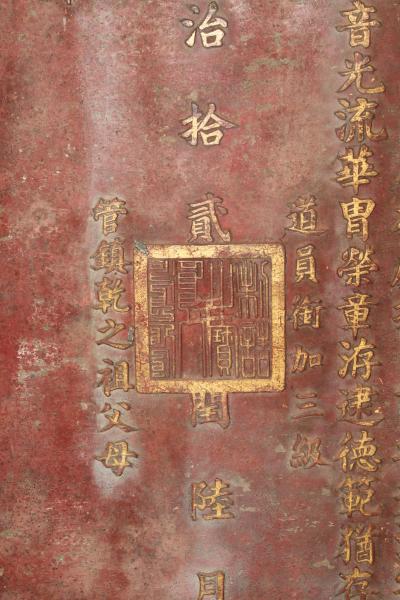 音光流華胄榮章洊逮德範猶存
道員銜加三級
治拾貳年閏陸月
制誥之寶
管鎮乾之祖父母